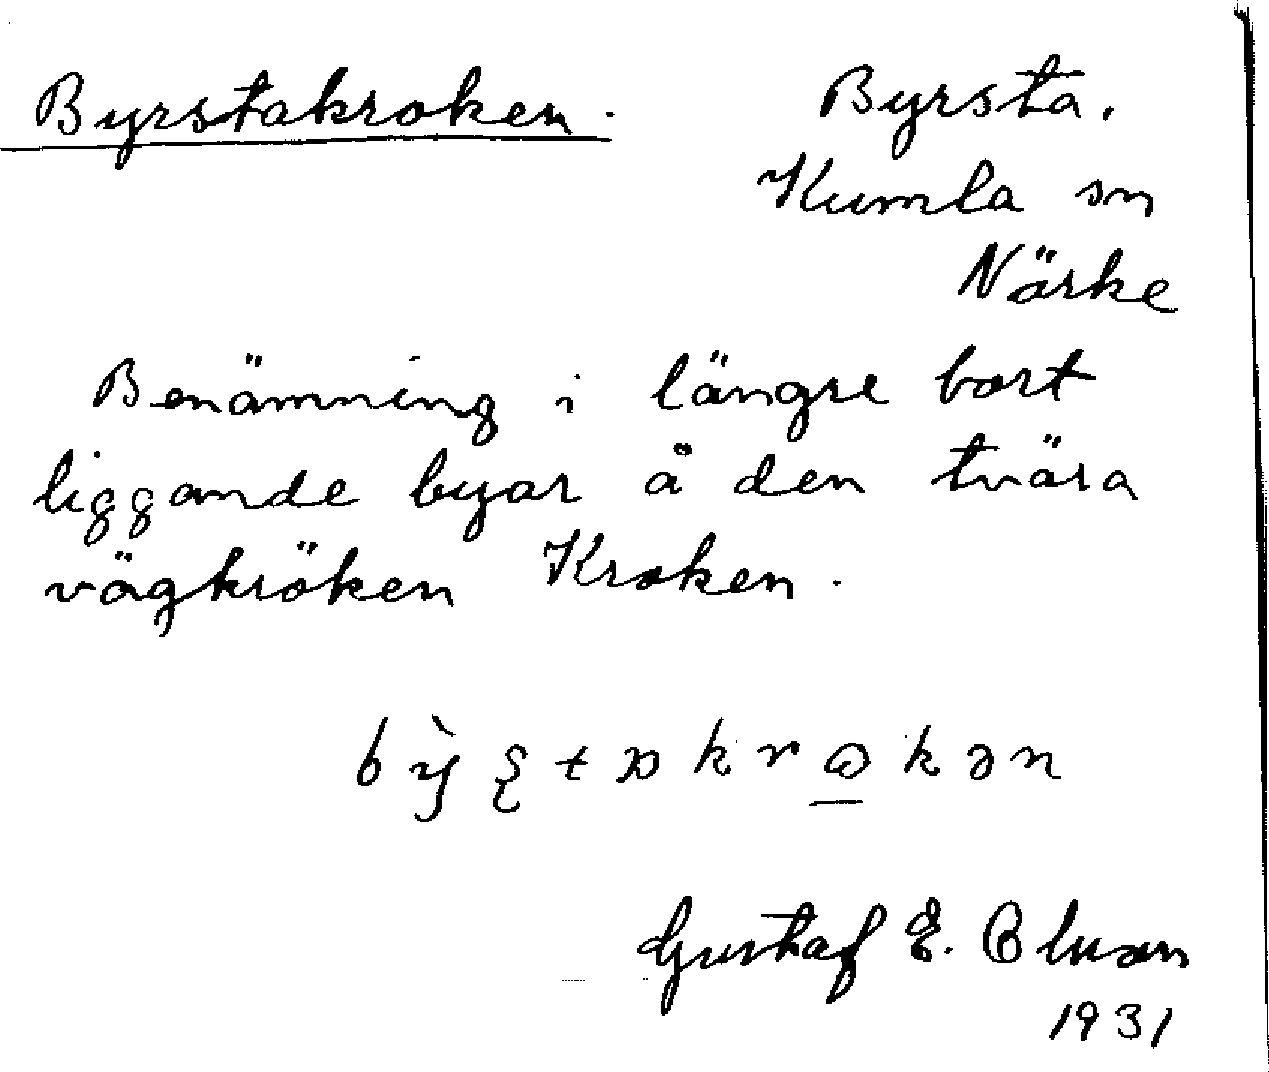 Byrstakroken.
Byrsta.
Kumla sn
Närke
Benämning i längre bort
liggande byar å den tvära
vägkröken Kroken.
Gustaf E.
1931